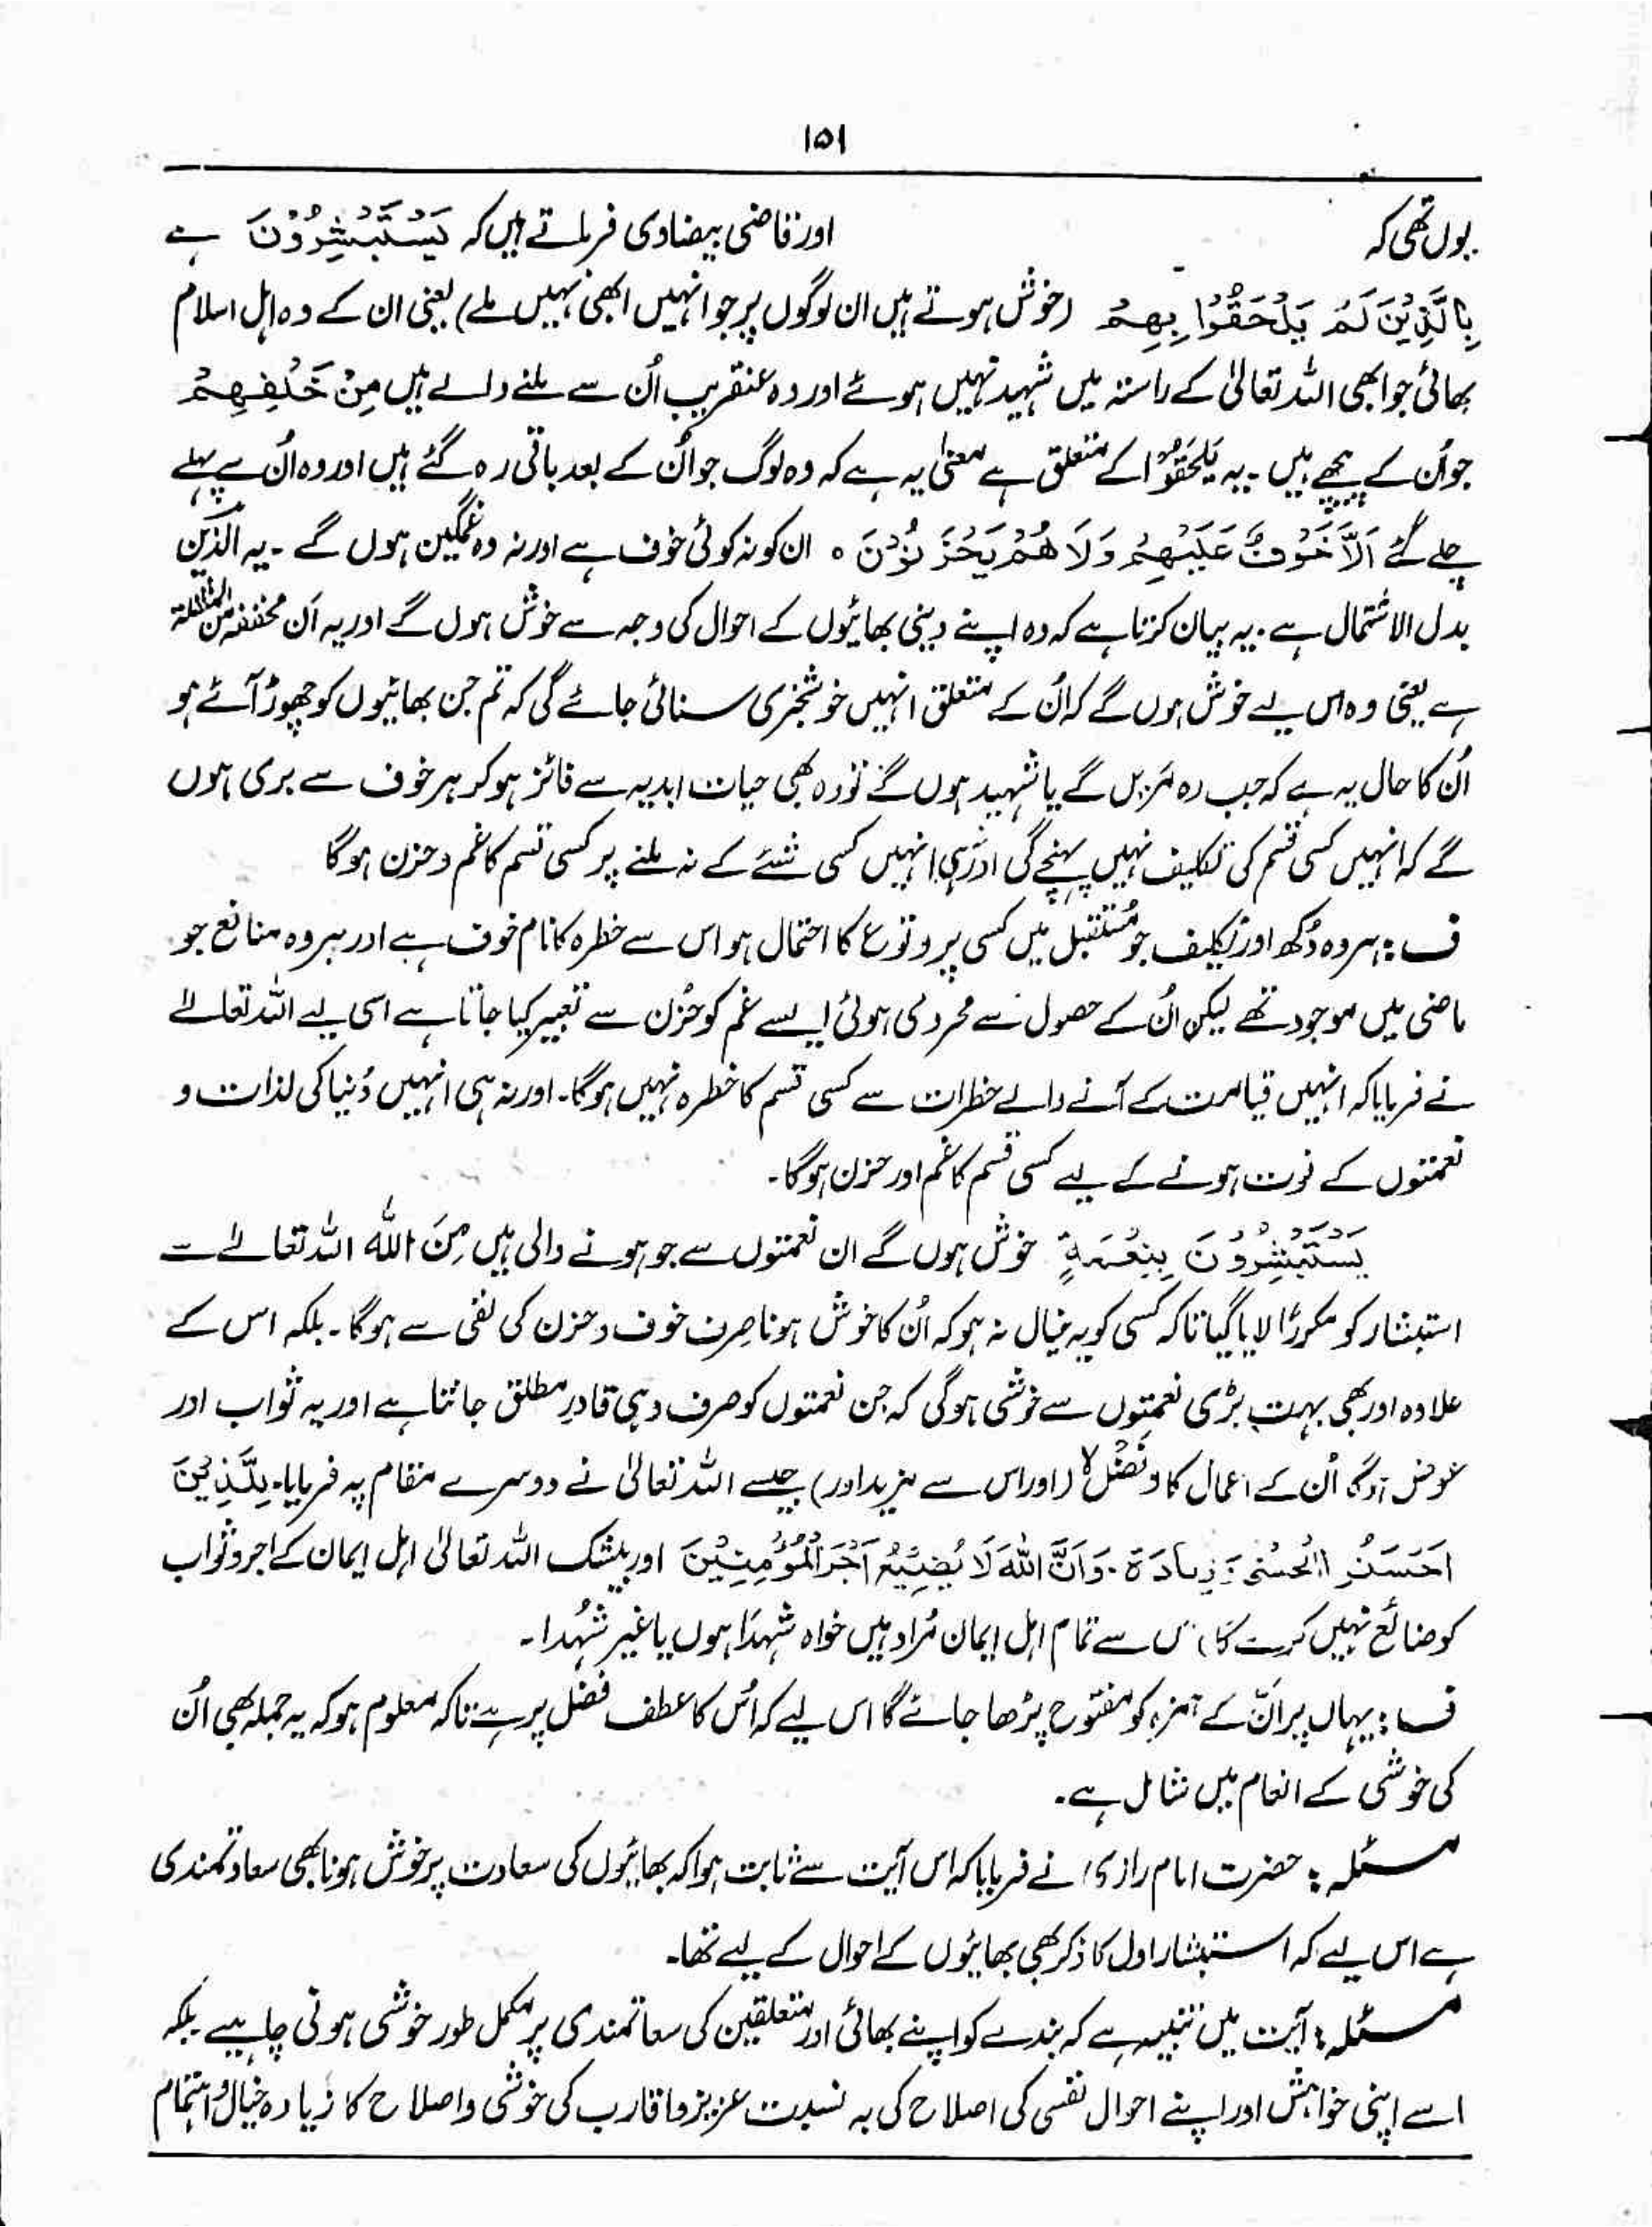 ۱۵۱
یوں تھی کہ اور قاضی بیضاوی فرماتے ہیں کہ یَسْتَبْشِرُوْنَ ہے
بِالَّذِیْنَ لَمْ یَلْحَقُوْا بِهِمْ (خوش ہوتے ہیں ان لوگوں پر جو انہیں ابھی نہیں ملے) یعنی ان کے وہ اہل اسلام
بھائی جو ابھی اللہ تعالیٰ کے راستہ میں شہید نہیں ہوئے اور وہ عنقریب اُن سے ملنے والے ہیں مِنْ خَلْفِهِمْ
جو اُن کے پیچھے ہیں ۔ یہ یَلْحَقُوْا کے متعلق ہے معنیٰ یہ ہے کہ وہ لوگ جو اُن کے بعد باقی رہ گئے ہیں اور وہ اُن سے پہلے
چلے گئے اَلَّا خَوْفٌ عَلَیْهِمْ وَلَا هُمْ یَحْزَنُوْنَ ٥ ان کو نہ کوئی خوف ہے اور نہ وہ غمگین ہوں گے ۔ یہ الذین
بدل الاشتمال ہے ۔ یہ بیان کرتا ہے کہ وہ اپنے دینی بھائیوں کے احوال کی وجہ سے خوش ہوں گے اور یہ اَن مخففہ من المثقلۃ
ہے یعنی وہ اس لیے خوش ہوں گے کہ اُن کے متعلق انہیں خوشخبری سنائی جائے گی کہ تم جن بھائیوں کو چھوڑ آئے ہو
اُن کا حال یہ ہے کہ جب وہ مَریں گے یا شہید ہوں گے تو وہ بھی حیات ابدیہ سے فائز ہو کر ہر خوف سے بری ہوں
گے کہ انہیں کسی قسم کی تکلیف نہیں پہنچے گی اور نہ ہی انہیں کسی شئے کے نہ ملنے پر کسی قسم کا غم و حزن ہوگا
ف : ہر وہ دُکھ اور تکلیف جو مُستقبل میں کسی پر وقوع کا احتمال ہو اس سے خطرہ کا نام خوف ہے اور ہر وہ منافع جو
ماضی میں موجود تھے لیکن اُن کے حصول سے محرومی ہوئی ایسے غم کو حُزن سے تعبیر کیا جاتا ہے اسی لیے اللہ تعالےٰ
نے فرمایا کہ انہیں قیامت کے آنے والے خطرات سے کسی قسم کا خطرہ نہیں ہوگا ۔ اور نہ ہی انہیں دُنیا کی لذات و
نعمتوں کے فوت ہونے کے لیے کسی قسم کا غم اور حزن ہوگا ۔
یَسْتَبْشِرُوْنَ بِنِعْمَةٍ خوش ہوں گے ان نعمتوں سے جو ہونے والی ہیں مِنَ اللّٰهِ اللہ تعالےٰ سے
استبشار کو مکررًا لایا گیا تاکہ کسی کو یہ خیال نہ ہو کہ اُن کا خوش ہونا صِرف خوف و حزن کی نفی سے ہوگا ۔ بلکہ اس کے
علاوہ اور بھی بہت بڑی نعمتوں سے خوشی ہوگی کہ جن نعمتوں کو صرف وہی قادرِ مطلق جانتا ہے اور یہ ثواب اور
عوض ہوگا اُن کے اعمال کا وَفَضْلٍ لا (اور اس سے مزید اور) جیسے اللہ تعالیٰ نے دوسرے مقام پہ فرمایا ۔ لِلَّذِیْنَ
اَحْسَنُوا الْحُسْنٰی وَزِیَادَةٌ ۔ وَاَنَّ اللّٰهَ لَا یُضِیْعُ اَجْرَ الْمُؤْمِنِیْنَ اور بیشک اللہ تعالیٰ اہل ایمان کے اجر و ثواب
کو ضائع نہیں کرے گا) اس سے تمام اہل ایمان مُراد ہیں خواہ شہدَا ہوں یا غیر شُہدا ۔
ف : یہاں پر اَنّ کے ہمزہ کو مفتوح پڑھا جائے گا اس لیے کہ اُس کا عطف فضل پر ہے تاکہ معلوم ہو کہ یہ جملہ بھی اُن
کی خوشی کے انعام میں شامل ہے ۔
مسئلہ : حضرت امام رازی نے فرمایا کہ اس آیت سے ثابت ہوا کہ بھائیوں کی سعادت پر خوش ہونا بھی سعادتمندی
ہے اس لیے کہ استبشار اول کا ذکر بھی بھائیوں کے احوال کے لیے تھا ۔
مسئلہ : آیت میں تنبیہ ہے کہ بندے کو اپنے بھائی اور متعلقین کی سعاتمندی پر مکمل طور خوشی ہونی چاہیے بلکہ
اسے اپنی خواہش اور اپنے احوال نفسی کی اصلاح کی بہ نسبت عزیز و اقارب کی خوشی و اصلاح کا زیادہ خیال و اہتمام